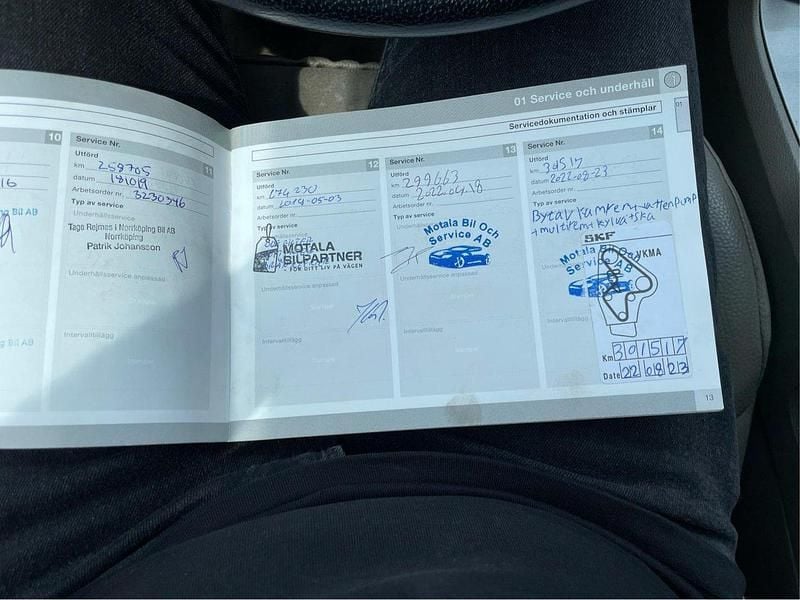 01 Service och underhåll
Servicedokumentation och stämplar
01
10
16
Bil AB
g Bil AB
Service Nr.
11
Utförd
km 258705
datum 181019
Arbetsorder nr. 3230346
Typ av service
Underhållsservice
Tage Rejmes i Norrköping Bil AB
Norrköping
Patrik Johansson
Underhållsservice anpassad
Intervalltillägg
Service Nr.
12
Utförd
km 274230
datum 2019-05-03
Arbetsorder nr.
Typ av service
MOTALA
BILPARTNER
FÖR DITT LIV PÅ VÄGEN
Underhållsservice anpassad
Intervalltillägg
Service Nr.
13
Utförd
km 299663
datum 2022.04.18
Arbetsorder nr.
Typ av service
Motala Bil Och
Service AB
Underhållsservice anpassad
Intervalltillägg
Service Nr.
14
Utförd
km 301517
datum 2022-08-23
Arbetsorder nr.
Typ av service
Byte av kamrem + vattenpump
+ multirem + kylvätska
SKF
VKMA
Motala Bil Och
Service AB
Intervalltillägg
Km 301517
Date 22 08 23
13